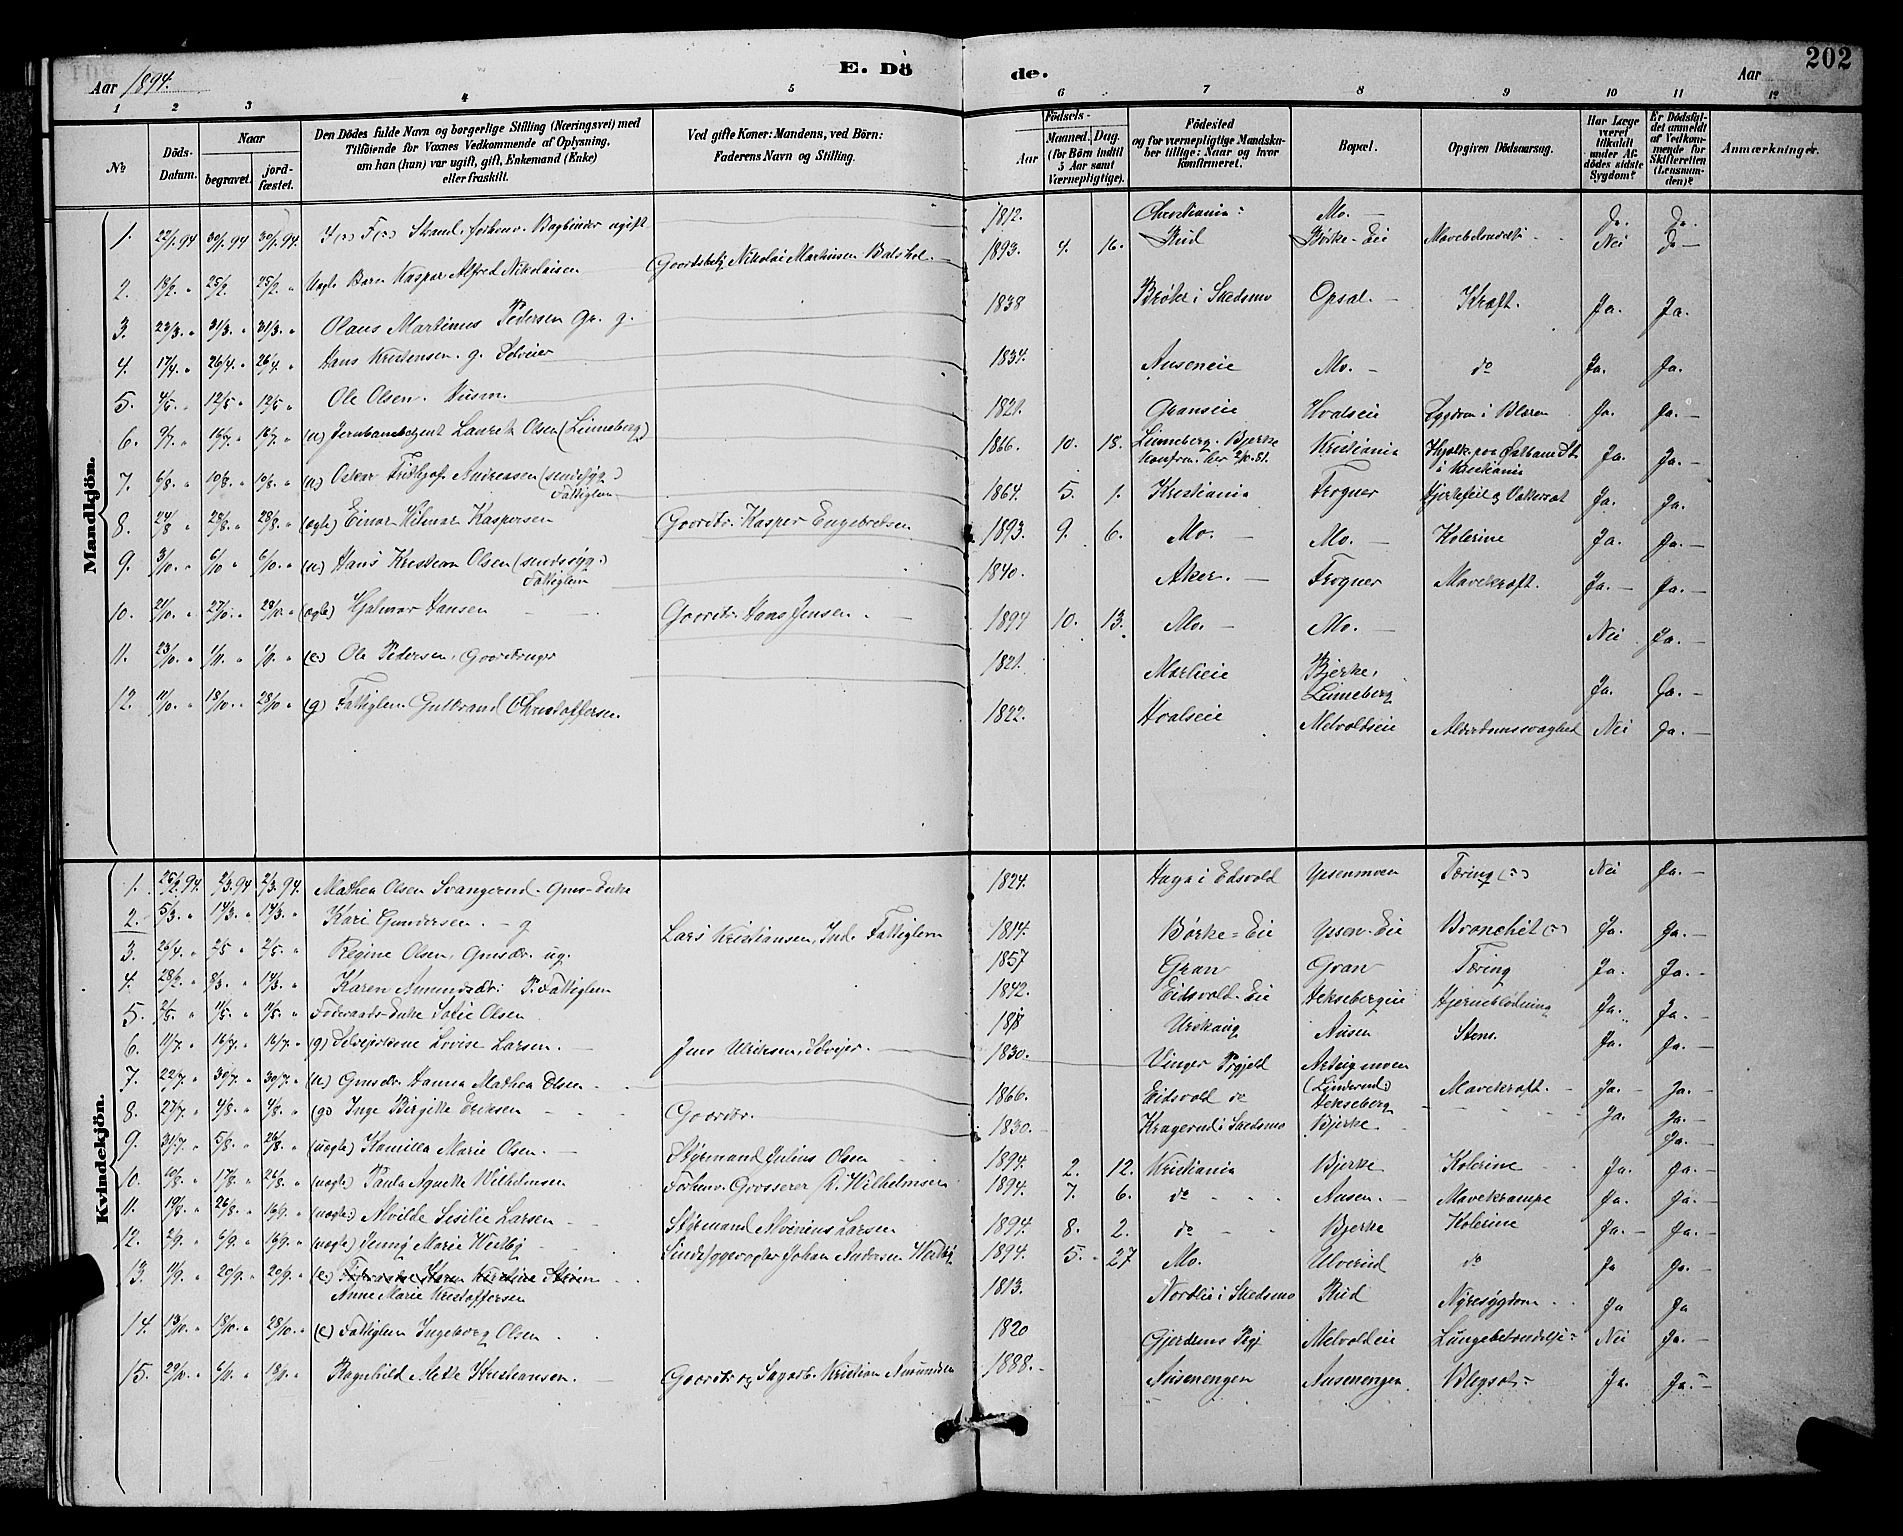 Aar 1894. E. Dö de. Aar 202
1 2 3 4 5 6 7 8 9 10 11 12
No Döds-Datum. Naar begravet. jordfæstet. Den Dödes fulde Navn og borgerlige Stilling (Næringsvei) med Tilföiende for Voxnes Vedkommende af Oplysning, om han (hun) var ugift, gift, Enkemand (Enke) eller fraskilt. Ved gifte Koner: Mandens, ved Börn: Faderens Navn og Stilling. Födsels- Aar Maaned. Dag. (for Børn indtil 5 Aar samt Værnepligtige). Födested og for værnepligtige Mandskaber tillige: Naar og hvor konfirmeret. Bopæl. Opgiven Dödsaarsag. Har Læge været tilkaldt under Afdödes sidste Sygdom? Er Dödsfaldet anmeldt af Vedkommende for Skifteretten (Lensmanden)? Anmærkninger.
Mandkjön.
1. 22/1 94 30/1 94 30/1 94 Strand, forhenv. Bogbinder ugift 1812. Christiania: Mo. Do. Do.
2. 18/2 " 25/2 " 25/2 " Uægte Barn Kaspar Alfred Nikolaisen Nikolai Martinsen 1893. 4. 16. Rud Børke-Eie Nei Do
3. 23/3 " 31/3 " 31/3 " Olaus Martinus Pedersen Gr. g. 1838 i Skedsmo Opsal. Kræft. Ja. Ja.
4. 17/4 " 26/4 " 26/4 " Hans Kristensen. g. Selveier 1834. Auseneie Mo. do Ja. Ja.
5. 4/5 " 12/5 " 12/5 " Ole Olsen. Husm. 1821. Granseie Hvalseie Sygdom i Blæren Ja. Ja.
6. 9/7 " 16/7 " 16/7 " (u) Laurits Olsen (Linneberg) 1866. 10. 18. Linneberg. Bjerke Kristiania i Kristiania Ja. Ja.
7. 6/8 " 10/8 " 10/8 " (u) Oskar Frithjof Andreasen (sindssyg) Fattiglem 1864. 5. 1. Kristiania Frogner Hjertefeil & Vattersot Ja. Ja.
8. 24/8 28/8 " 28/8 " (ægte) Einar Hilmar Kaspersen Gaardbr. Kasper Engebretsen 1893. 9. 6. Mo. Mo. Kolerine Ja. Ja.
9. 3/10 " 6/10 " 6/10 " (u) Hans Kristian Olsen (sindssyg) Fattiglem 1840. Aker. Frogner Mavekræft. Ja. Ja.
10. 21/10 " 27/10 " 28/10 " (ægte) Hjalmar Hansen Gaardbr. Hans Jensen. 1894 10. 13. Mo. Mo. Nei Ja.
11. 23/10 " 1/11 " 1/11 " (e) Ole Pedersen, Gaardbruger 1821. Marlieie Bjerke, Linneberg Ja. Ja.
12. 11/10 " 18/10 " 28/10 " (g) Fattiglem Gulbrand Christoffersen. 1822. Hvalseie Melvoldseie Alderdomssvaghed Nei Ja.
Kvindekjön.
1. 25/2 94 2/3 94 2/3 94. Mathea Olsen Svangerud. Gms-Enke 1824. Haga i Eidsvold Ypsenmoen Tæring (?) Nei Ja.
2. 5/3 " 14/3 " 14/3 " Kari Gundersen. g Lars Kristiansen, Ind. Fattiglem 1814. Børke-Eie Ypsen-Eie Bronchit (?) Ja. Ja.
3. 26/4 " 2/5 " 2/5 " Regine Olsen, Gmsdr. ug. 1857 Gran Gran Tæring Ja. Ja.
4. 28/2 " 8/3 " 14/3 " Karen Amundsdr: Fattiglem 1842. Eidsvold-Eie Heksebergeie Hjerneblødning Ja. Ja.
5. " 11/5 " 11/5 " Føderaads-Enke Sofie Olsen 1818 Urskaug Ausen Sten. Ja. Ja.
6. 11/7 " 16/7 " 16/7 " (g) Selveierkone Lovise Larsen. Jens Ulriksen, Selvejer. 1830. Vinger Prgjeld (Linderud) Ja. Ja.
7. 22/7 " 30/7 " 30/7 " (u) Gmsdr. Hanna Mathea Olsen 1866. Eidsvold do Hekseberg Mavekræft. Ja. Ja.
8. 27/7 " 4/8 " 4/8 " (g) Inge Birgitte Eriksen Gaardbr. 1830. Kragerud i Skedsmo Bjerke Ja. Ja.
9. 31/7 " 5/8 " 26/8 " (uægte) Kamilla Marie Olsen. Styrmand Julius Olsen 1894. 2. 12. Kristiania Bjerke Kolerine Ja. Ja.
10. 10/8 " 17/8 " 24/8 " (uægte) Paula Agnethe Wilhelmsen Forhenv. Grosserer K. Wilhelmsen 1894. 7. 6. do Ausen. Mavekrampe Ja. Ja.
11. 19/8 " 26/8 " 16/9 " (uægte) Alvilde Sesilie Larsen Styrmand Larsen 1894. 8. 2. do Bjerke Kolerine Ja. Ja.
12. 2/9 " 6/9 " 16/9 " (uægte) Jenny Marie Westby Sindssygevogter Johan Andersen Westby 1894. 5. 27 Mo. Ulverud do Ja Ja.
13. 11/9 " 20/9 " 20/9 " (e) Anne Marie Kristoffersen 1813. Nordlie i Skedsmo Rud Nyresygdom Ja Ja
14. 13/10 " 18/10 " 28/10 " (e) Fattiglem Ingeborg Olsen 1820 Gjerdrums Prgj Melvoldeie Lungebetændelse Nei Ja.
15. 29/10 " 6/11 " 18/11 " Ragnhild Mette Kristiansen. Gaardbr og Sagarb. Kristian Amundsen 1888. Ausenengen Ausenengen Blegsot Ja. Ja.